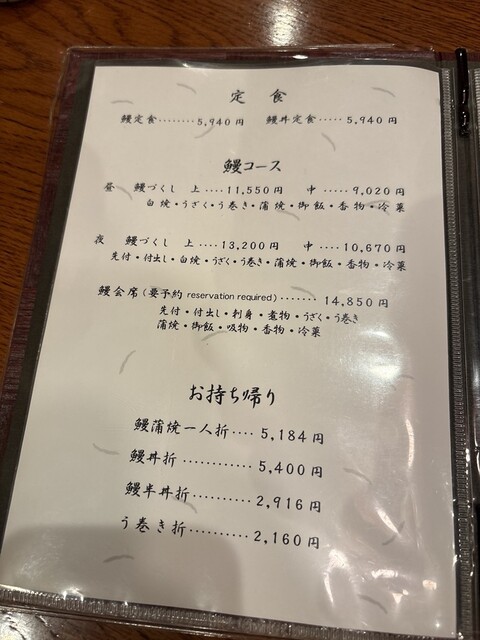 定食
鰻定食………5,940円　鰻丼定食……5,940円
鰻コース
昼　鰻づくし　上‥‥11,550円　中‥‥‥9,020円
白焼・うざく・う巻き・蒲焼・御飯・香物・冷菓
夜　鰻づくし　上‥‥13,200円　中‥‥10,670円
先付・付出し・白焼・うざく・う巻き・蒲焼・御飯・香物・冷菓
鰻会席（要予約 reservation required）‥‥‥‥14,850円
先付・付出し・刺身・煮物・うざく・う巻き
蒲焼・御飯・吸物・香物・冷菓
お持ち帰り
鰻蒲焼一人折‥‥5,184円
鰻丼折‥‥‥‥‥‥5,400円
鰻半丼折‥‥‥‥‥2,916円
う巻き折‥‥‥‥‥2,160円